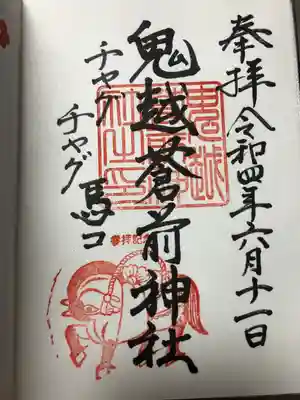 奉拝 令和四年六月十一日
鬼越蒼前神社
チャグ
チャグ馬コ
参拝記念